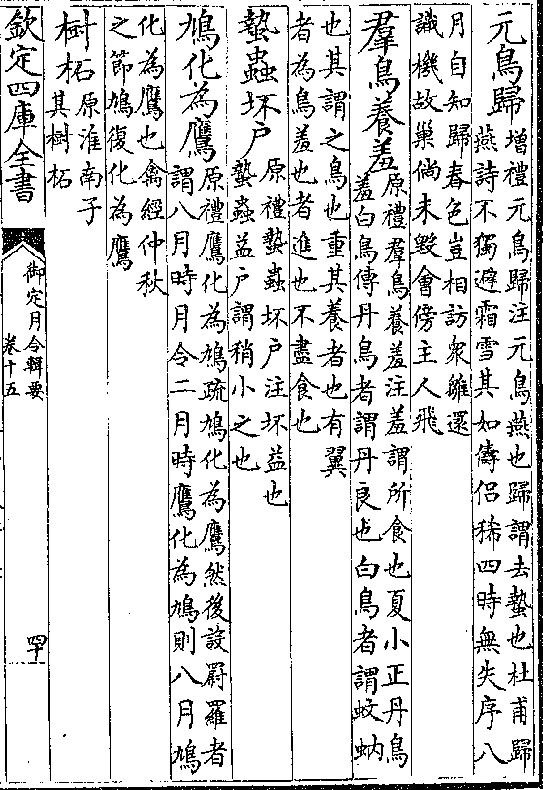 元鳥歸增禮元鳥歸注元鳥燕也歸謂去蟄也杜甫歸
燕詩不獨避霜雪其如儔侣稀四時無失序八
月自知歸春色豈相訪衆雛還
識機故巢倘未毁會傍主人飛
羣鳥養羞原禮羣鳥養羞注羞謂所食也夏小正丹鳥
羞白鳥傳丹鳥者謂丹良也白鳥者謂蚊蚋
也其謂之鳥也重其養者也有翼
者為鳥羞也者進也不盡食也
蟄蟲坏户原禮蟄蟲坏户注坏益也
蟄蟲益户謂稍小之也
鳩化為鷹原禮鷹化為鳩疏鳩化為鷹然後設罻羅者
謂八月時月令二月時鷹化為鳩則八月鳩
化為鷹也禽經仲秋
之節鳩復化為鷹
樹柘原淮南子
其樹柘
欽定四庫全書
御定月令輯要
卷十五
四十